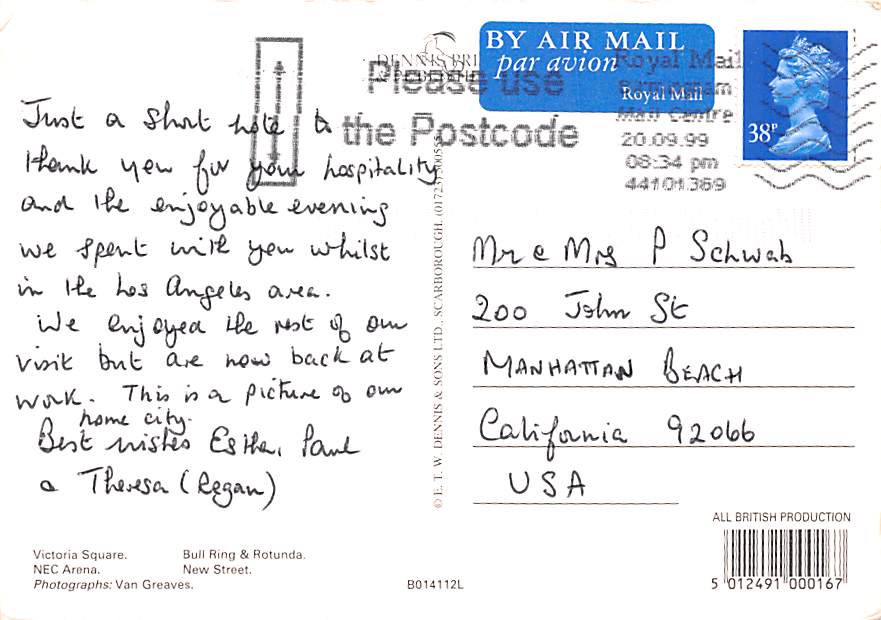 DENNIS PRI
BY AIR MAIL
par avion
Royal Mail
Please use
the Postcode
Royal Mail
Mail Centre
20.09.99
08:34 pm
44101389
38P
Just a short note to
thank you for your hospitality
and the enjoyable evening
we spent with you whilst
in the Los Angeles area.
We enjoyed the rest of our
visit but are now back at
work. This is a picture of our
home city.
Best wishes Esther, Paul
& Theresa (Regan)
Mr & Mrs P Schwab
200 John St
MANHATTAN BEACH
California 92066
USA
© E. T. W. DENNIS & SONS LTD., SCARBOROUGH. (01723) 500555
ALL BRITISH PRODUCTION
5 012491 000167
Victoria Square. Bull Ring & Rotunda.
NEC Arena. New Street.
Photographs: Van Greaves.
B014112L